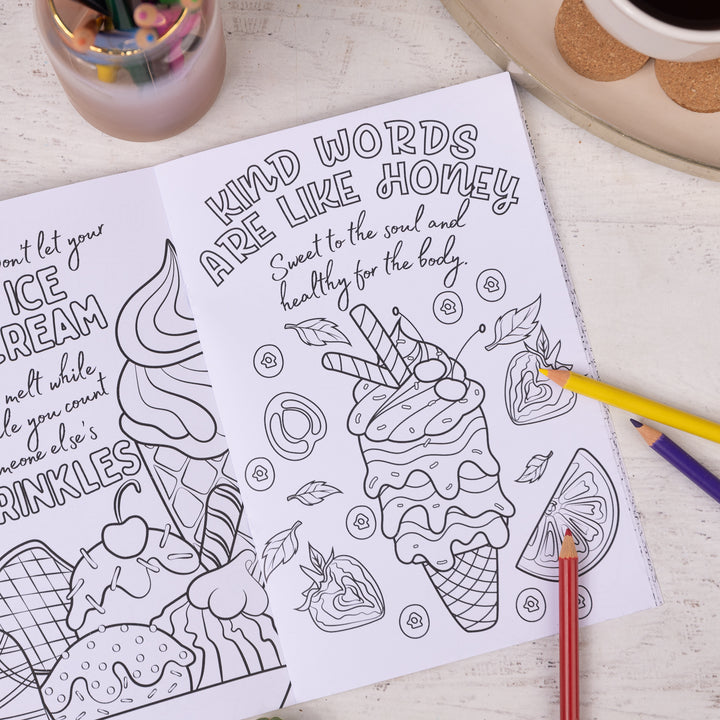 on't let your
ICE
CREAM
melt while
le you count
meone else's
RINKLES
KIND WORDS
ARE LIKE HONEY
Sweet to the soul and
healthy for the body.